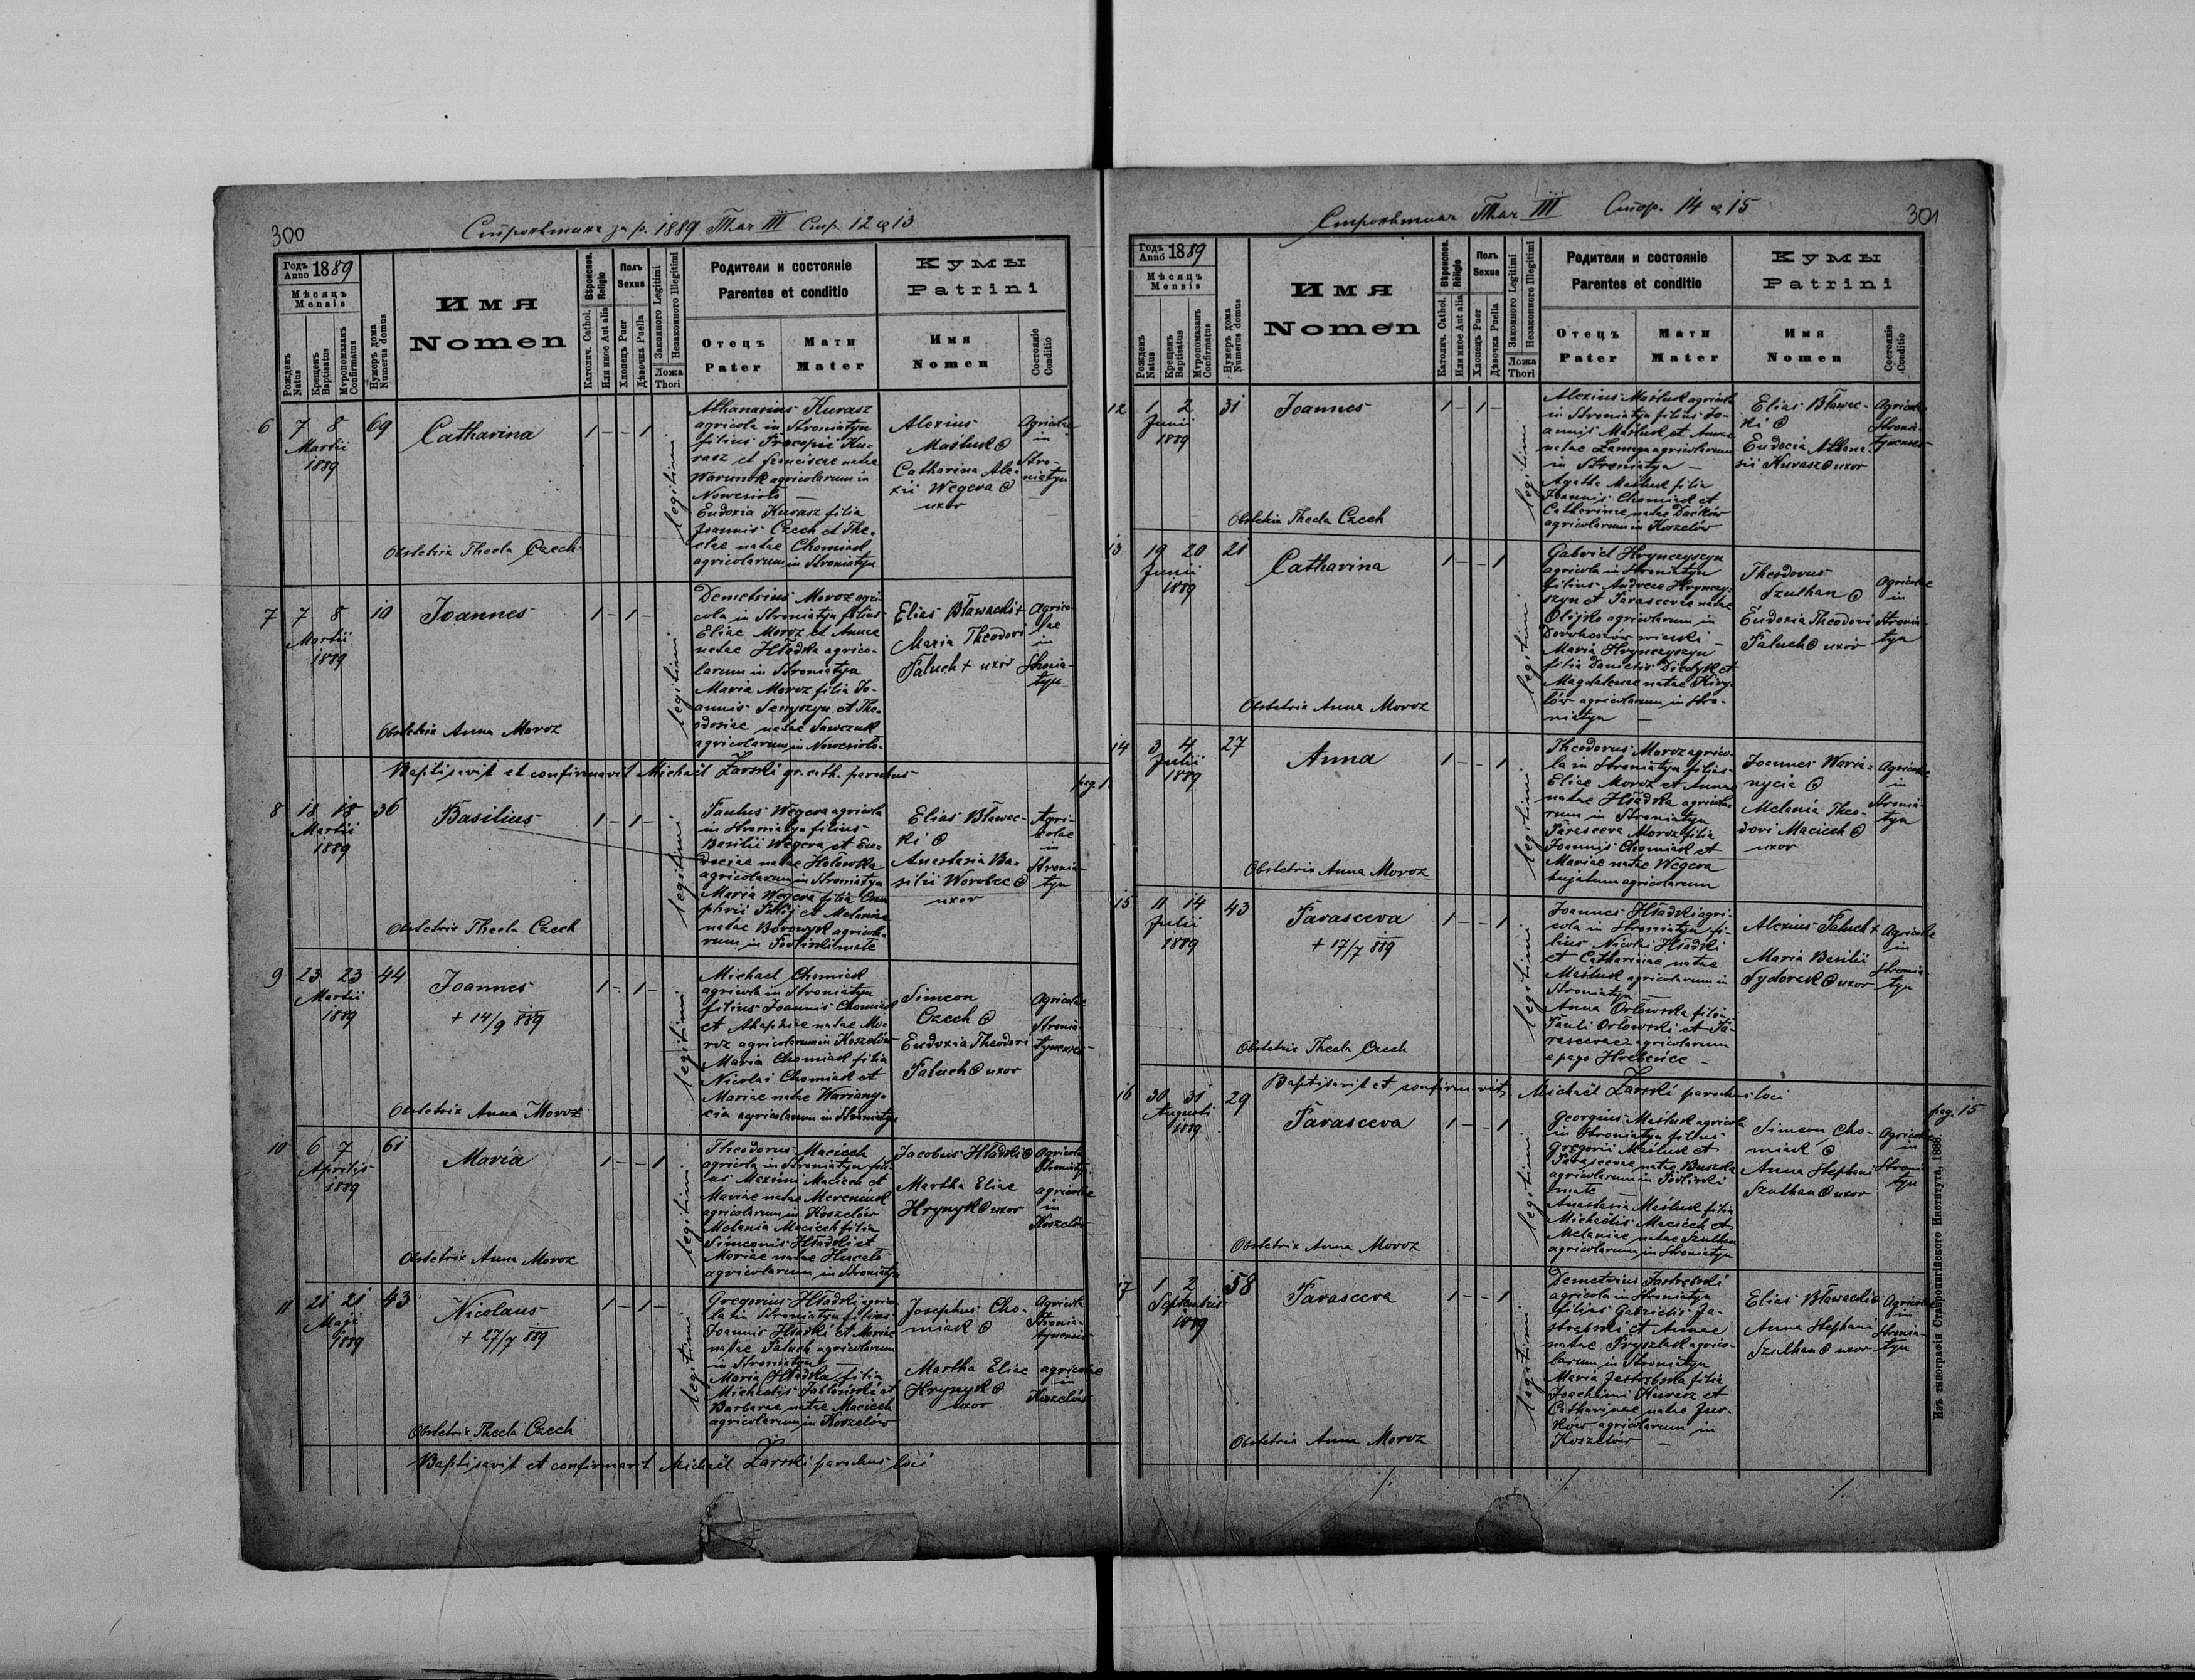 300
Строњтинъ за р. 1889 Том III Стр. 12 & 13
Годъ Anno 1889
Мѣсяцъ Mensis
Рожденъ Natus
Крещенъ Baptisatus
Мѵропомазанъ Confirmatus
Нумеръ дома Numerus domus
Имя
Nomen
Вѣроиспов. Religio
Католич. Cathol.
Или иное Aut alia
Полъ Sexus
Хлопецъ Puer
Дѣвочка Puella
Законного Legitimi
Незаконного Illegitimi
Ложа Thori
Родители и состоянie
Parentes et conditio
Отецъ Pater
Мати Mater
Кумы
Patrini
Имя Nomen
Состоянie Conditio
6
7 8
Martii
1889
69
Catharina
1 - - 1
legitimi
Athanasius Kurasz
agricola in Stroniatyn
filius Procopii Ku-
rasz et Franciscae natae
Warunok agricolarum in
Nowesioło —
Eudoxia Kurasz filia
Joannis Czech et The-
clae natae Chomiak
agricolarum in Stroniatyn
Alexius
Maśluk
Catharina Ale-
xii Wegera
uxor
Agricolae
in
Stro-
niatyn
Obstetrix Thecla Czech
7
7 8
Martii
1889
10
Joannes
1 - 1 -
legitimi
Demetrius Moroz agri-
cola in Stroniatyn filius
Eliae Moroz et Annae
natae Hładka agrico-
larum in Stroniatyn
Maria Moroz filia Jo-
annis Senyszyn et The-
odosiae natae Sawczuk
agricolarum in Nowesioło
Elias Bławacki +
Maria Theodori
Paluch + uxor
Agrico-
lae
in
Stronia-
tyn
Obstetrix Anna Moroz
Baptisavit et confirmavit Michael Żarski gr. cath. parochus
8
18 18
Martii
1889
36
Basilius
1 - 1 -
legitimi
Paulus Wegera agricola
in Stroniatyn filius
Basilii Wegera et Eu-
dociae natae Hołowka
agricolarum in Stroniatyn
Maria Wegera filia Onu-
phrii Palij et Melaniae
natae Borowyk agricola-
rum in Podliski małe
Elias Bławac-
ki
Anastasia Ba-
silii Worobec
uxor
Agri-
colae
in
Stronia-
tyn
Obstetrix Thecla Czech
9
23 23
Martii
1889
44
Joannes
+ 14/9 889
1 - 1 -
legitimi
Michael Chomiak
agricola in Stroniatyn
filius Joannis Chomiak
et Ahaphiae natae Mo-
roz agricolarum in Koszelów
Maria Chomiak filia
Nicolai Chomiak et
Mariae natae Wariany-
cia agricolarum in Stroniatyn
Simeon
Czech
Eudoxia Theodori
Paluch uxor
Agricolae
Stronia-
tynenses
Obstetrix Anna Moroz
10
6 7
Aprilis
1889
61
Maria
1 - - 1
legitimi
Theodorus Maciech
agricola in Stroniatyn fili-
us Maximi Maciech et
Mariae natae Mereniuk
agricolarum in Koszelów
Melania Maciech filia
Simeonis Hładki et
Mariae natae
agricolarum in Stroniatyn
Jacobus Hładki
Martha Eliae
Hrynyk uxor
Agricola
Stroniatyn
agricolae
in
Koszelów
Obstetrix Anna Moroz
11
21 21
Maji
1889
43
Nicolaus
+ 27/7 889
1 - 1 -
legitimi
Gregorius Hładki agrico-
la in Stroniatyn filius
Joannis Hładki et Mariae
natae Paluch agricolarum
in Stroniatyn —
Maria Hładka filia
Michaelis Jabłoński et
Barbarae natae Maciech
agricolarum in Koszelów
Josephus Cho-
miak
Martha Eliae
Hrynyk
uxor
Agricola
Stronia-
tynensis
agricolae
in
Koszelów
Obstetrix Thecla Czech
Baptisavit et confirmavit Michael Żarski parochus loci
301
Строњтинъ Том III Стор. 14 & 15
Годъ Anno 1889
Мѣсяцъ Mensis
Рожденъ Natus
Крещенъ Baptisatus
Мѵропомазанъ Confirmatus
Нумеръ дома Numerus domus
Имя
Nomen
Вѣроиспов. Religio
Католич. Cathol.
Или иное Aut alia
Полъ Sexus
Хлопецъ Puer
Дѣвочка Puella
Законного Legitimi
Незаконного Illegitimi
Ложа Thori
Родители и состоянie
Parentes et conditio
Отецъ Pater
Мати Mater
Кумы
Patrini
Имя Nomen
Состоянie Conditio
12
1 2
Junii
1889
31
Joannes
1 - 1 -
legitimi
Alexius Maśluk agricola
in Stroniatyn filius Jo-
annis Maśluk et Annae
natae agricolarum
in Stroniatyn —
Agatha Maśluk filia
Joannis Chomiak et
Catherinae natae Dacków
agricolarum in Koszelów
Elias Bławac-
ki
Eudocia Athana-
sii Kurasz uxor
Agricolae
Stronia-
tynenses
Obstetrix Thecla Czech
13
19 20
Junii
1889
21
Catharina
1 - - 1
legitimi
Gabriel Hrynczyszyn
agricola in Stroniatyn
filius Andreae Hrynczy-
szyn et Parascevae natae
Olijko agricolarum in
Dorohoszów wielki —
Maria Hrynczyszyn
filia Danielis Diedyk et
Magdalenae natae Kiry-
łów agricolarum in Stro-
niatyn —
Theodorus
Szulhan
Eudoxia Theodori
Paluch uxor
Agricolae
in
Stronia-
tyn
Obstetrix Anna Moroz
14
3 4
Julii
1889
27
Anna
1 - - 1
legitimi
Theodorus Moroz agrico-
la in Stroniatyn filius
Eliae Moroz et Annae
natae Hładka agricola-
rum in Stroniatyn
Parasceva Moroz filia
Joannis Chomiak et
Mariae natae Wegera
hujatum agricolarum
Joannes Waria-
nycia
Melania Theo-
dori Maciech
uxor
Agricolae
in
Stronia-
tyn
Obstetrix Anna Moroz
15
11 14
Julii
1889
43
Parasceva
+ 17/7 889
1 - - 1
legitimi
Joannes Hładki agri-
cola in Stroniatyn fi-
lius Nicolai Hładki
et Catharinae natae
Maśluk agricolarum in
Stroniatyn —
Anna Orłowska filia
Pauli Orłowski et Pa-
rascevae agricolarum
e pago Hrebeńce —
Alexius Paluch +
Maria Basilii
Sydorak uxor
Agricolae
in
Stronia-
tyn
Obstetrix Thecla Czech
Baptisavit et confirmavit Michael Żarski parochus loci
pag. 15
16
30 31
Augusti
1889
29
Parasceva
1 - - 1
legitimi
Georgius Maśluk agricola
in Stroniatyn filius
Gregorii Maśluk et
Parascevae natae Buszka
agricolarum in Podliski
małe —
Anastasia Maśluk filia
Michaelis Maciech et
Melaniae natae Szulhan
agricolarum in Stroniatyn
Simeon Cho-
miak
Anna Stephani
Szulhan uxor
Agricolae
in
Stronia-
tyn
Obstetrix Anna Moroz
17
1 2
Septembris
1889
58
Parasceva
1 - - 1
legitimi
Demetrius Jastrębski
agricola in Stroniatyn
filius Gabrielis Ja-
strębski et Annae
natae Pryszlak agrico-
larum in Stroniatyn
Maria Jastrębska filia
Joachimi Kurasz et
Catharinae natae Jur-
ków agricolarum in
Koszelów —
Elias Bławacki
Anna Stephani
Szulhan uxor
Agricolae
in
Stronia-
tyn
Obstetrix Anna Moroz
Изъ типографiи Ставропигiйского Института, 1888.